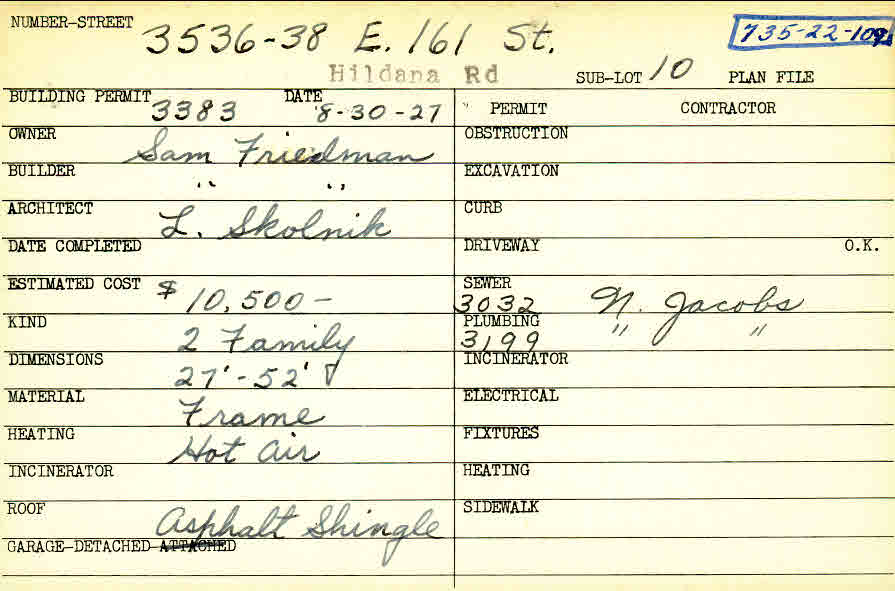 NUMBER-STREET 3536-38 E. 161 St. 735-22-109
Hildana Rd SUB-LOT 10 PLAN FILE
BUILDING PERMIT 3383 DATE 8-30-27 PERMIT CONTRACTOR
OWNER Sam Friedman OBSTRUCTION
BUILDER " " EXCAVATION
ARCHITECT L. Skolnik CURB
DATE COMPLETED DRIVEWAY O.K.
ESTIMATED COST $10,500- SEWER 3032 N. Jacobs
KIND 2 Family PLUMBING 3199 " "
DIMENSIONS 27'-52' INCINERATOR
MATERIAL Frame ELECTRICAL
HEATING Hot Air FIXTURES
INCINERATOR HEATING
ROOF Asphalt Shingle SIDEWALK
GARAGE-DETACHED-ATTACHED